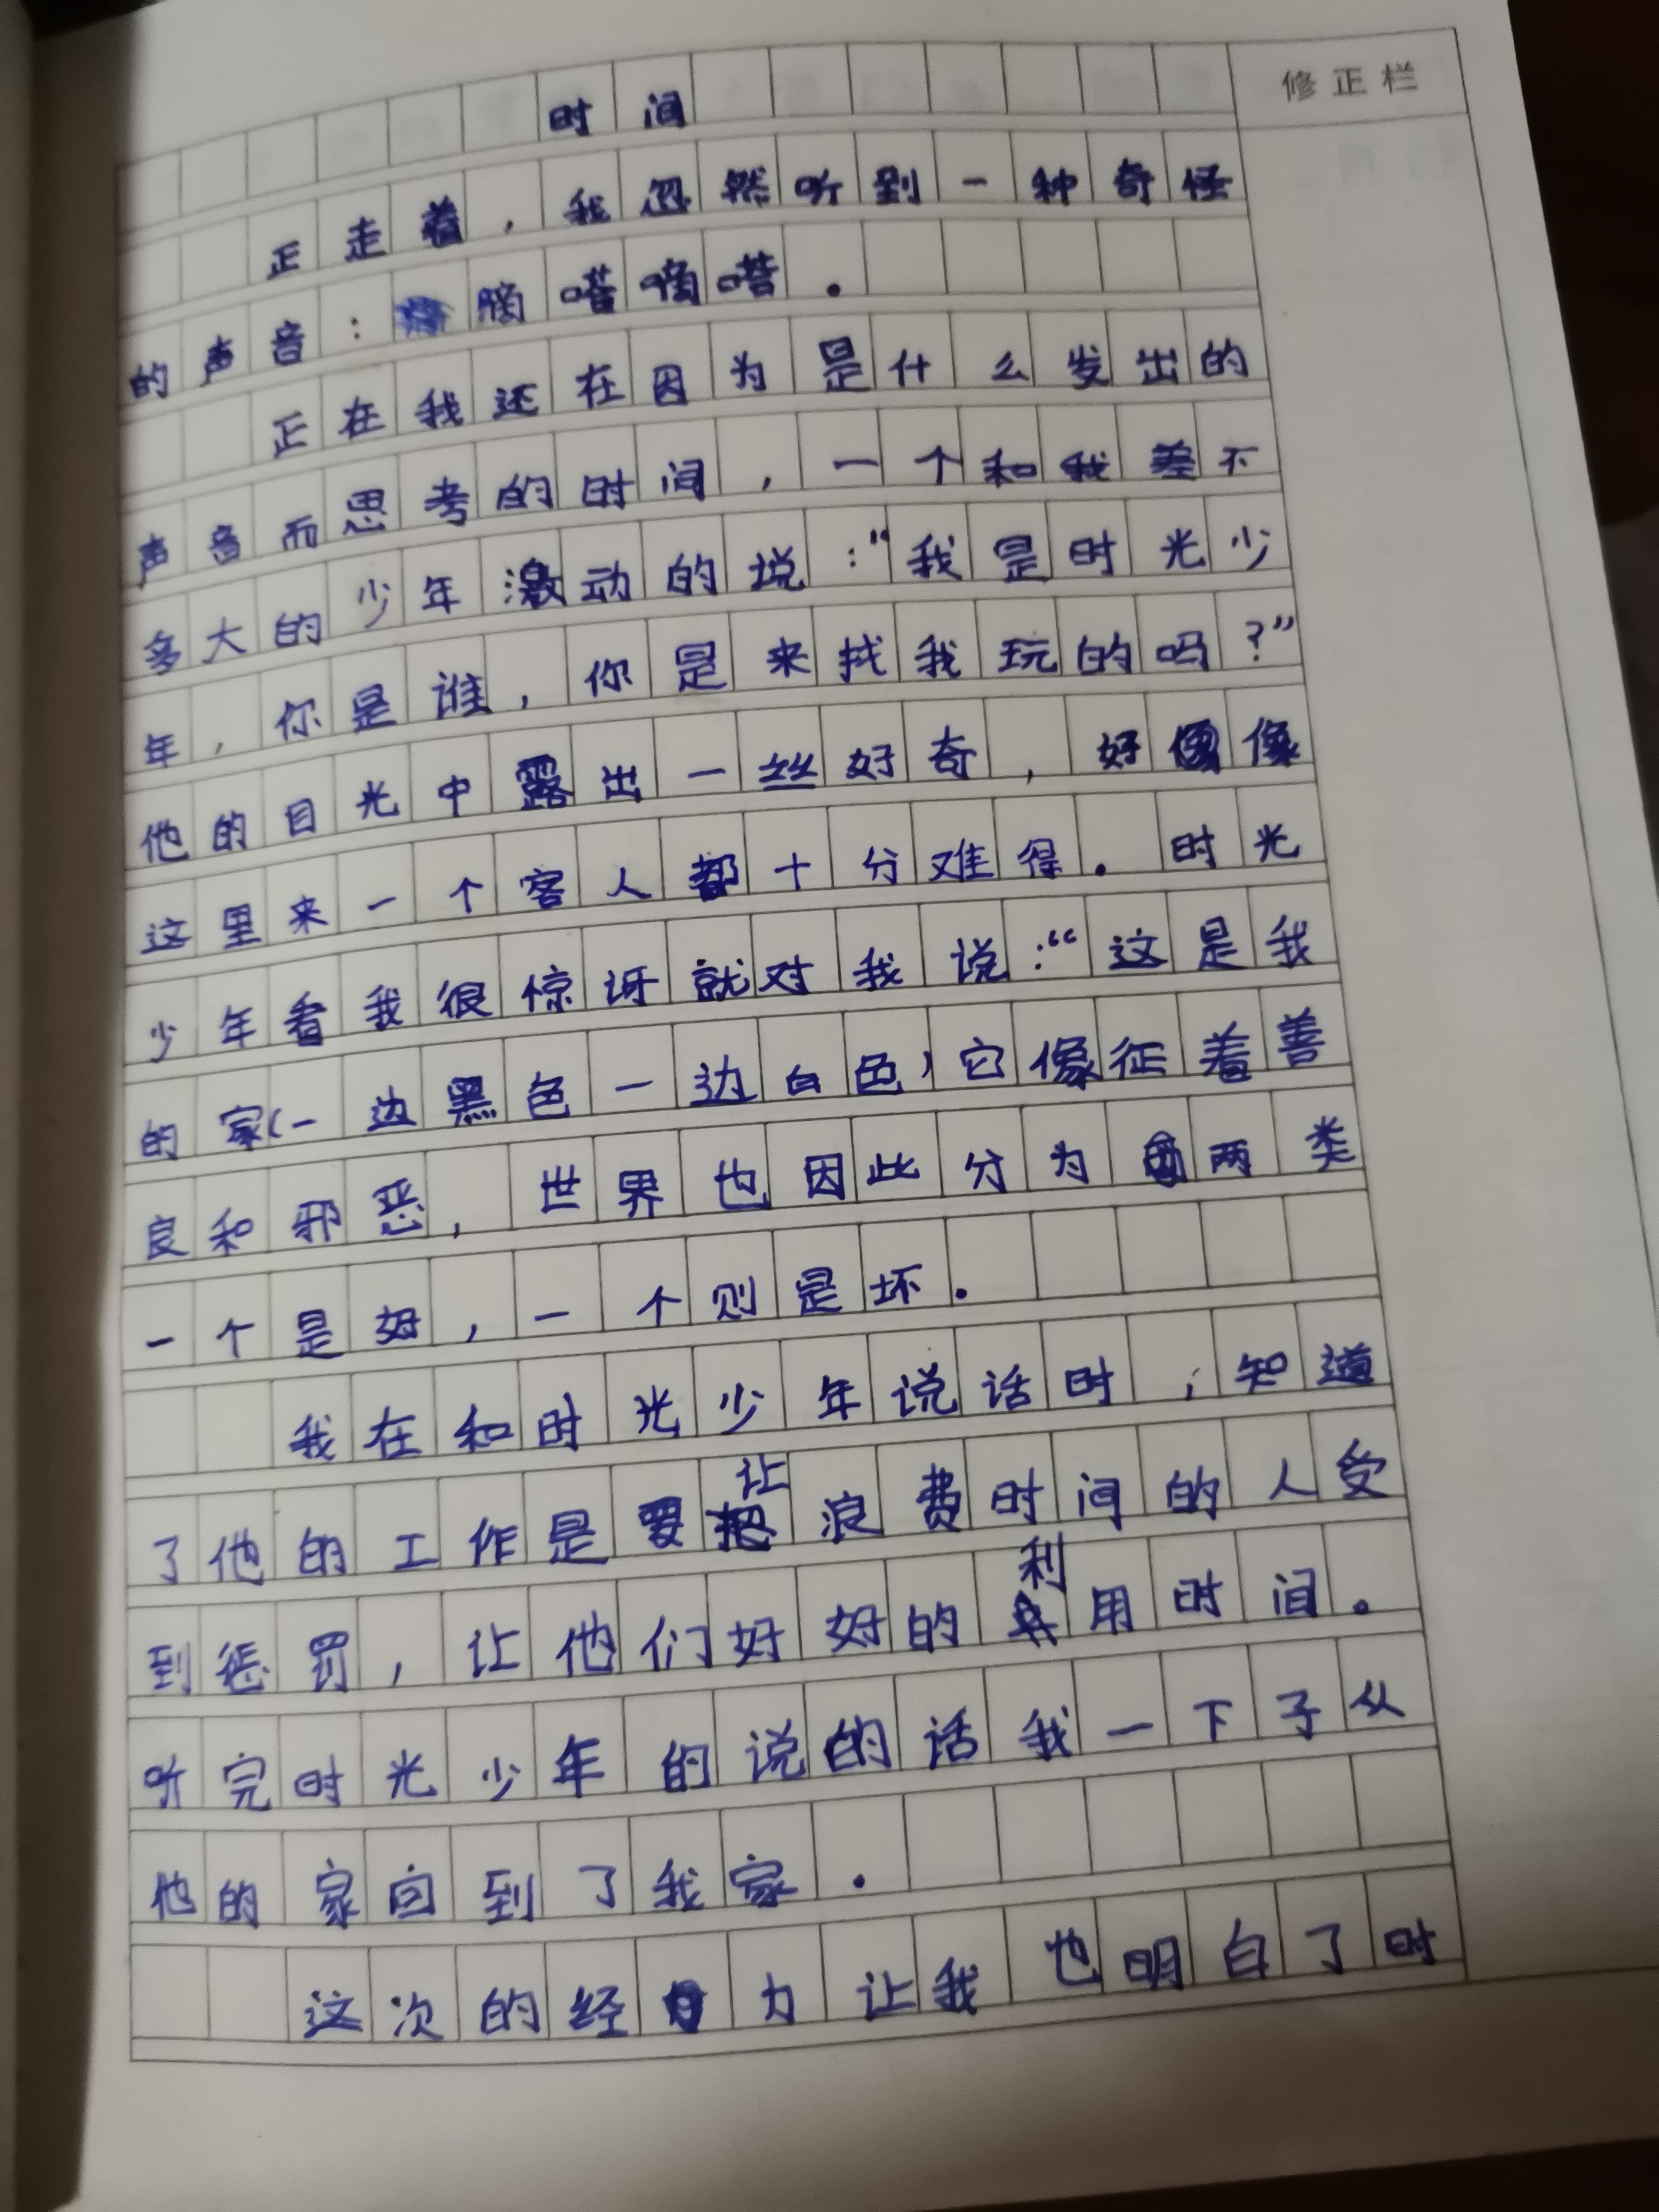 修正栏
时间
正走着，我忽然听到一种奇怪
的声音：嘀嗒嘀嗒.
正在我还在因为是什么发出的
声音而思考的时间，一个和我差不
多大的少年激动的说："我是时光少
年，你是谁，你是来找我玩的吗？"
他的目光中露出一丝好奇，好像
这里来一个客人都十分难得.时光
少年看我很惊讶就对我说："这是我
的家(一边黑色一边白色)它像征着善
良和邪恶，世界也因此分为两类
一个是好，一个则是坏.
我在和时光少年说话时，知道
了他的工作是要让浪费时间的人受
到惩罚，让他们好好的利用时间.
听完时光少年的说的话我一下子从
他的家回到了我家.
这次的经力让我也明白了时